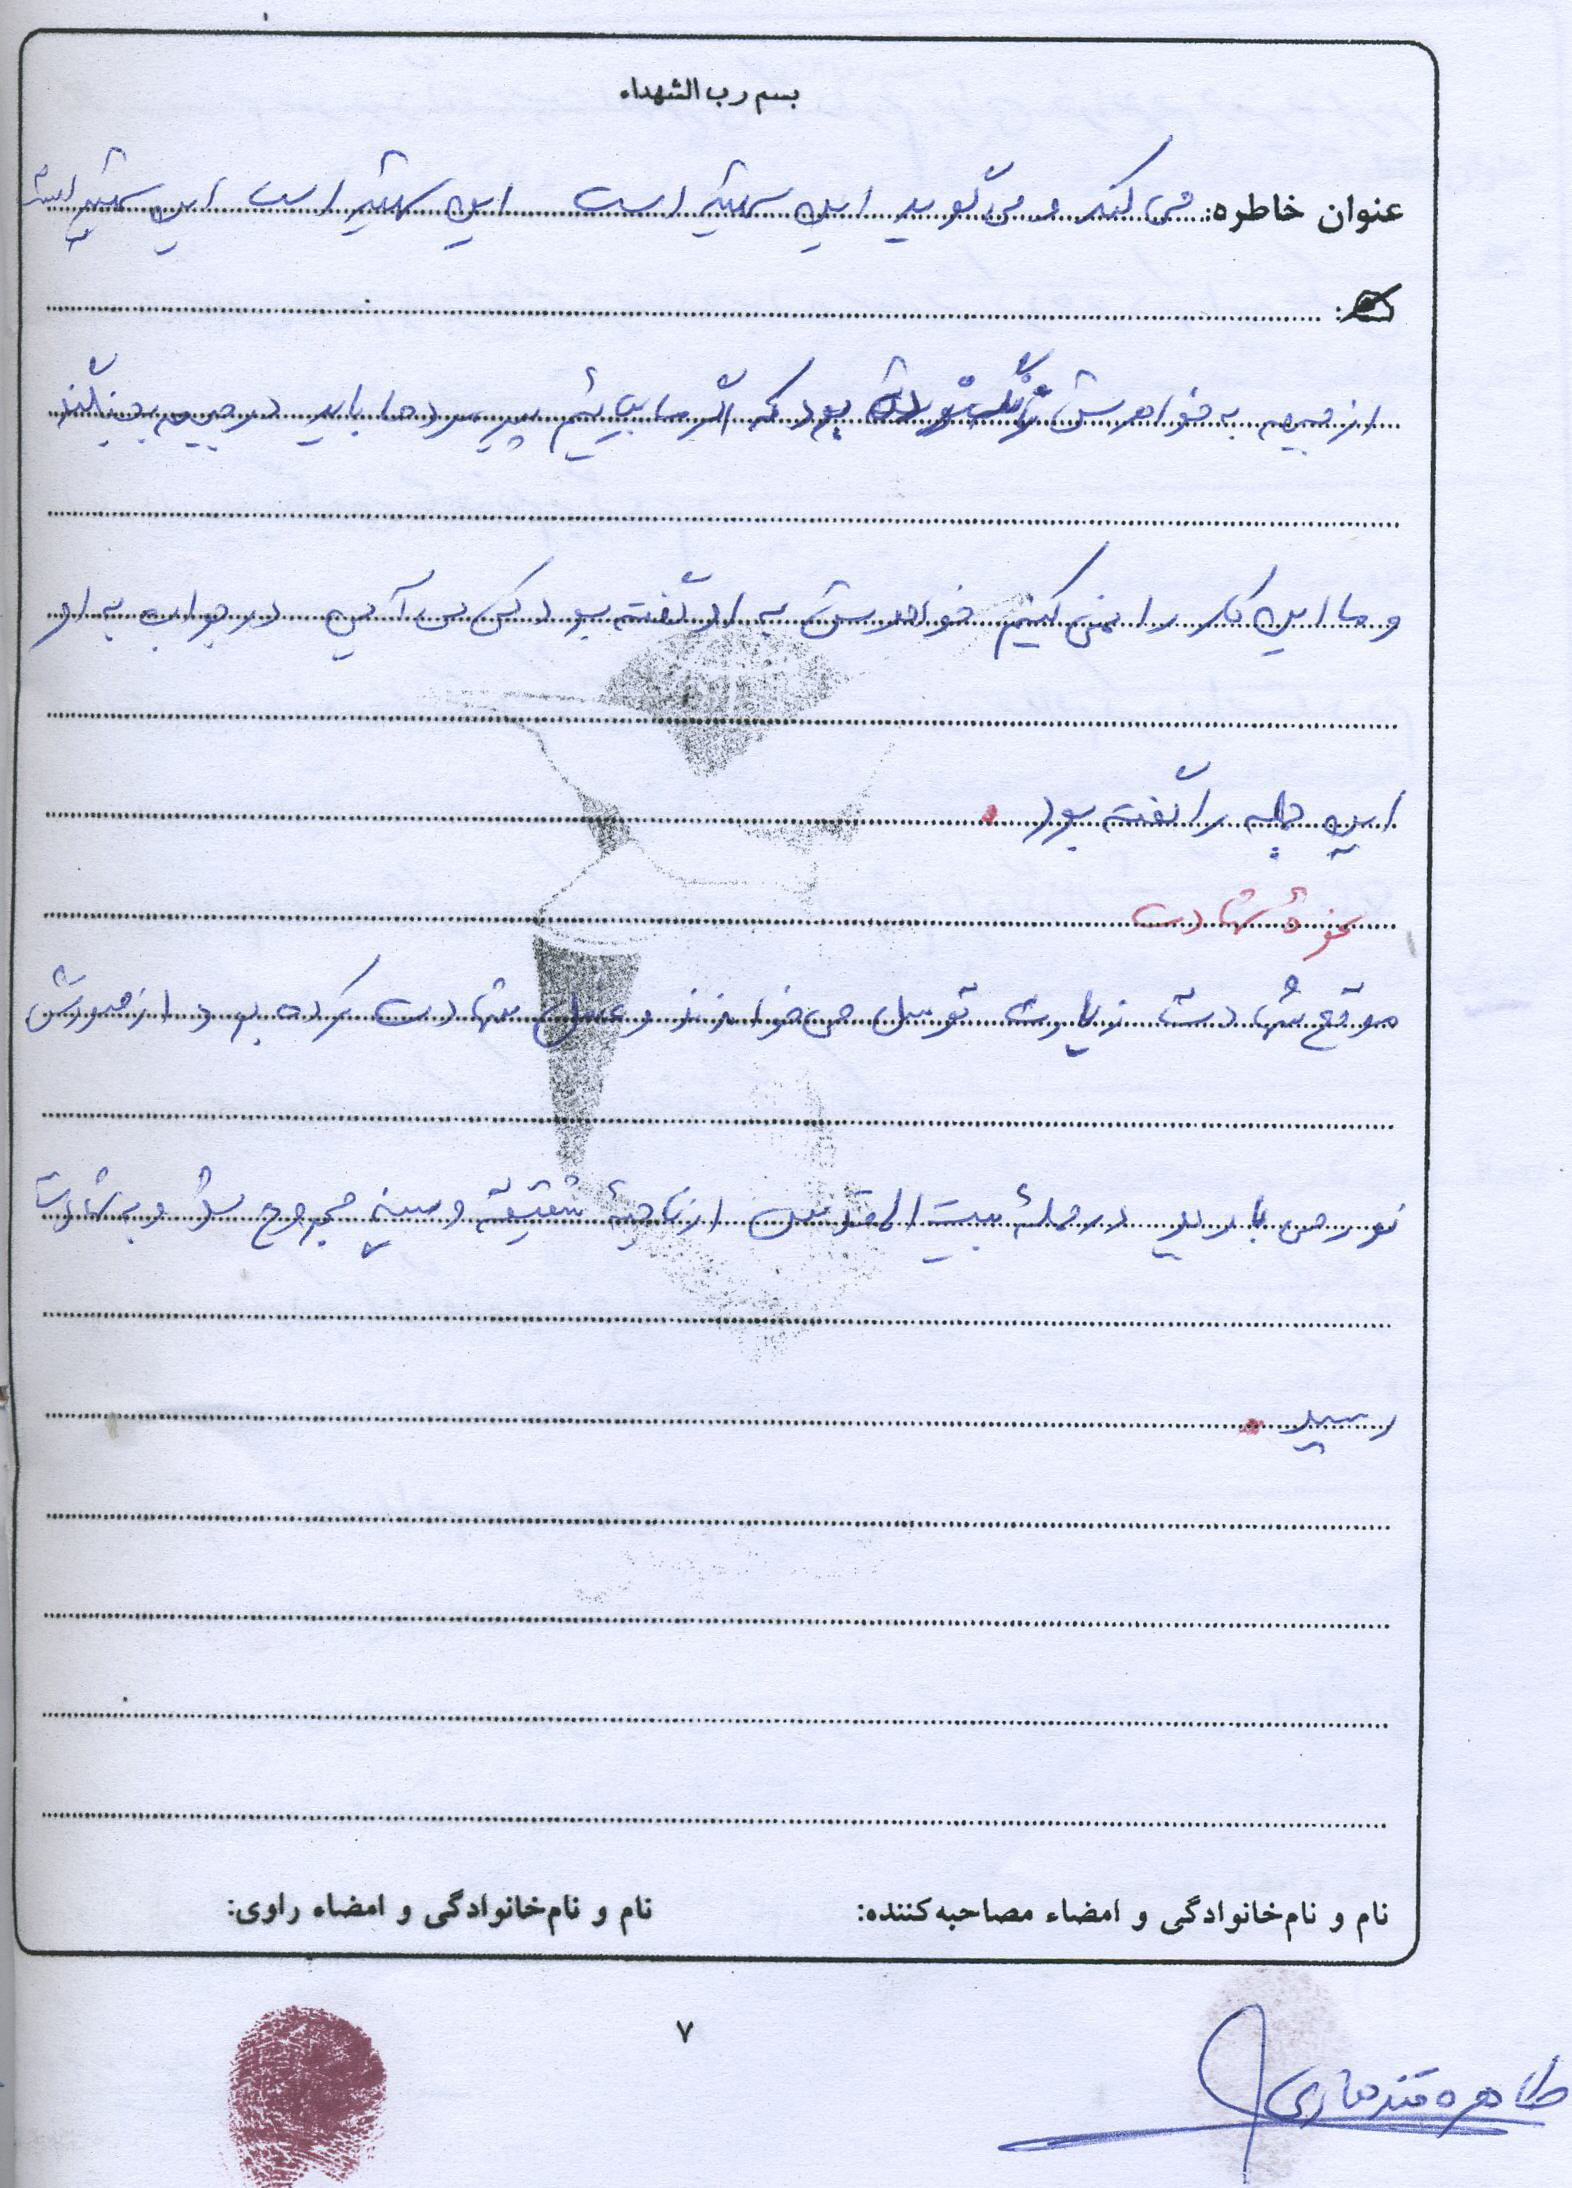 بسم رب الشهداء
عنوان خاطره: می کند و می گوید این بهتر است این بهتر است این بهتر است
از جبهه به خواهرش زنگ زده بود که اگر ما بیائیم پیرمردها باید در جبهه بجنگند
و ما این کار را نمی کنیم خواهرش به او گفته بود کی می آیی در جواب به او
این جمله را گفته بود.
نحوهٔ شهادت
موقع شهادت زیارت توسل می خوانند و غسل شهادت کرده بود از صورتش
نور می بارید در حملهٔ بیت المقدس از ناحیهٔ شقیقه و سینه مجروح شد و به شهادت
رسید.
نام و نام‌خانوادگی و امضاء مصاحبه‌کننده: نام و نام‌خانوادگی و امضاء راوی:
۷
طاهره قندهاری